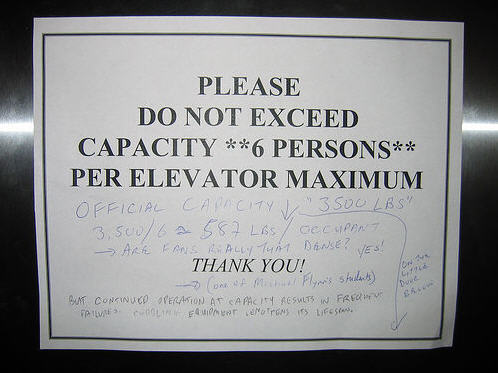 PLEASE
DO NOT EXCEED
CAPACITY **6 PERSONS**
PER ELEVATOR MAXIMUM
OFFICIAL CAPACITY "3500 LBS"
3,500/6 ≈ 587 LBS/OCCUPANT
→ ARE FANS REALLY THAT DENSE? YES!
THANK YOU!
→ (one of Michael Flynn's students)
ON THE
LITTLE
DOOR
BELOW
BUT CONTINUED OPERATION AT CAPACITY RESULTS IN FREQUENT
FAILURES. CODDLING EQUIPMENT LENGTHENS ITS LIFESPAN.